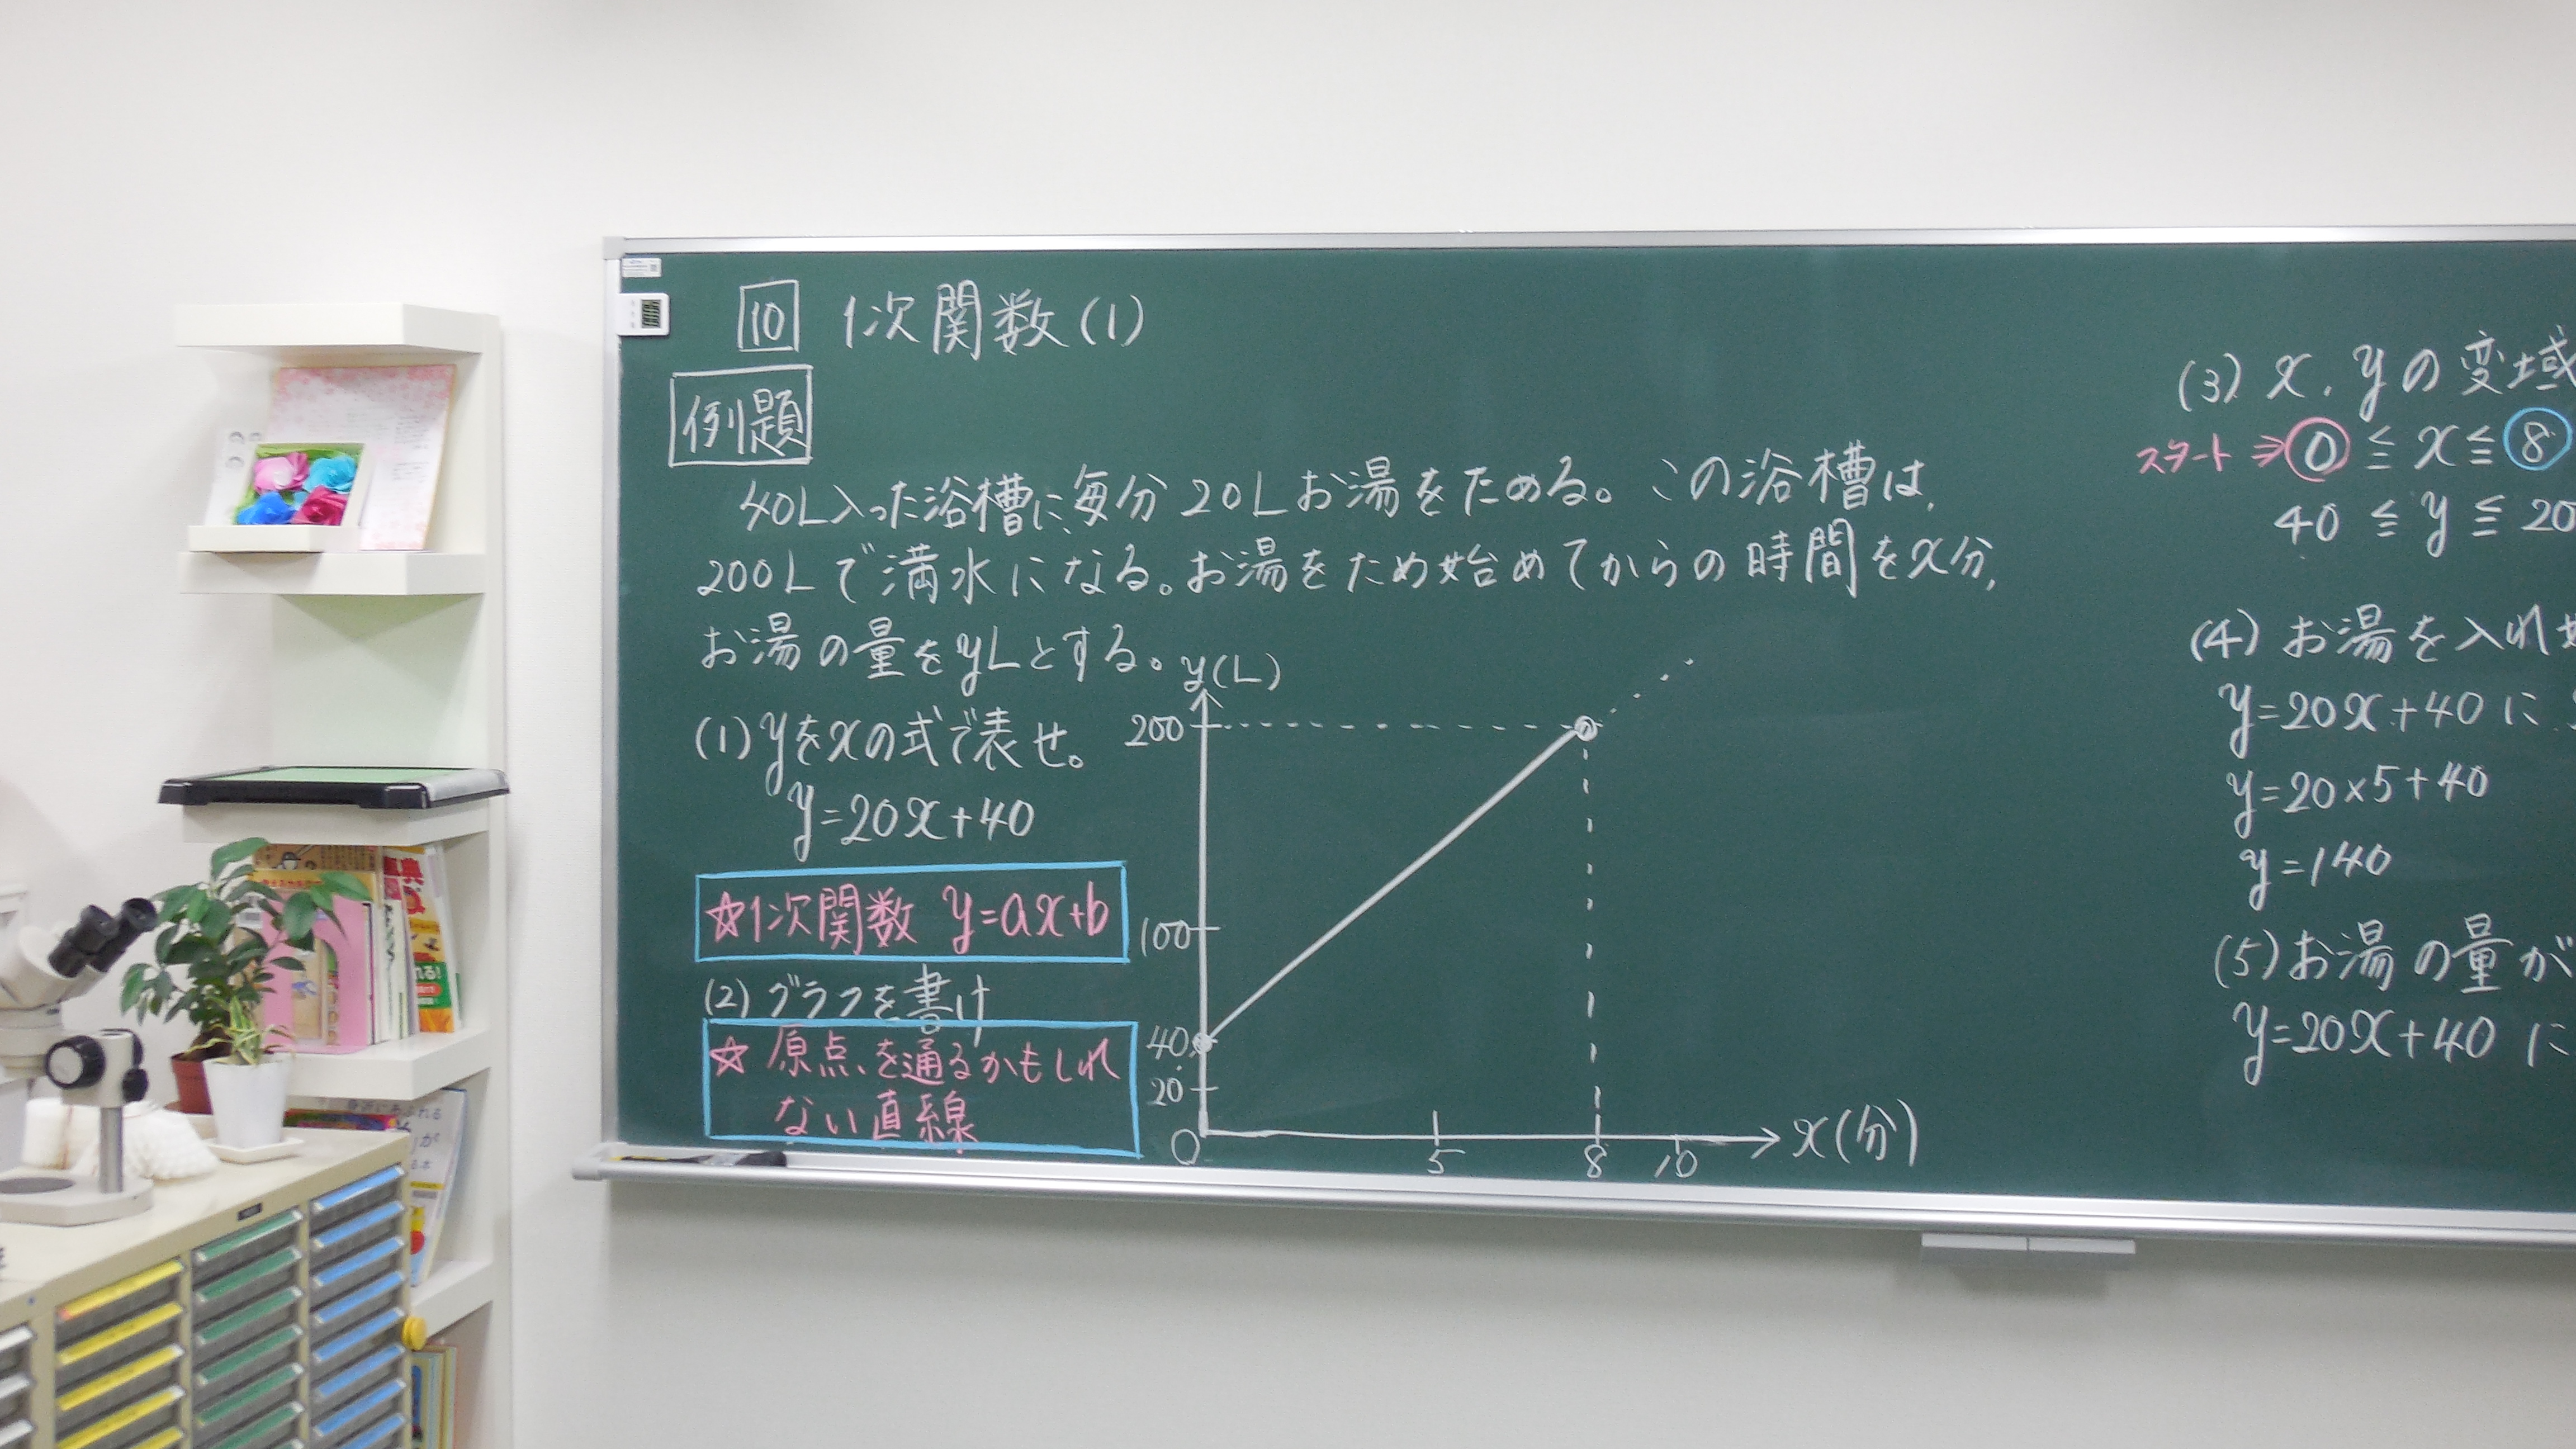 10 1次関数(1)
例題
40L入った浴槽に毎分20Lお湯をためる。この浴槽は,
200Lで満水になる。お湯をため始めてからの時間をx分,
お湯の量をyLとする。
(1) yをxの式で表せ。
y=20x+40
☆1次関数 y=ax+b
(2) グラフを書け
☆ 原点を通るかもしれ
ない直線
y(L)
200
100
40
20
0
5
8
10
x(分)
(3) x, yの変域
スタート⇒0≦x≦8
40≦y≦20
(4) お湯を入れ
y=20x+40に
y=20×5+40
y=140
(5) お湯の量が
y=20x+40に